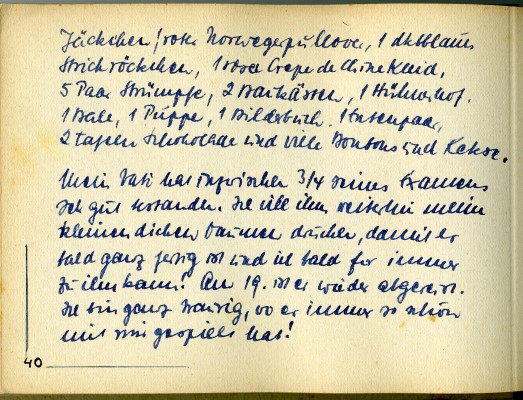 Jäckchen, 1 roter Norwegerpullover, 1 dklblaues
Strickröckchen, 1 rosa Crepe de Chine Kleid,
5 Paar Strümpfe, 2 Baukästen, 1 Hühnerhof.
1 Ball, 1 Puppe, 1 Bilderbuch. 1 Entenpaar,
2 Tafeln Schokolade und viele Bonbons und Kekse.
Mein Vati hat inzwischen 3/4 seines Examens
sehr gut bestanden. Ich will ihm weiterhin meine
kleinen dicken Daumen drücken, damit er
bald ganz fertig ist und ich bald für immer
zu ihm kann! Am 19. ist er wieder abgereist.
Ich bin ganz traurig, wo er immer so schön
mit mir gespielt hat!
40